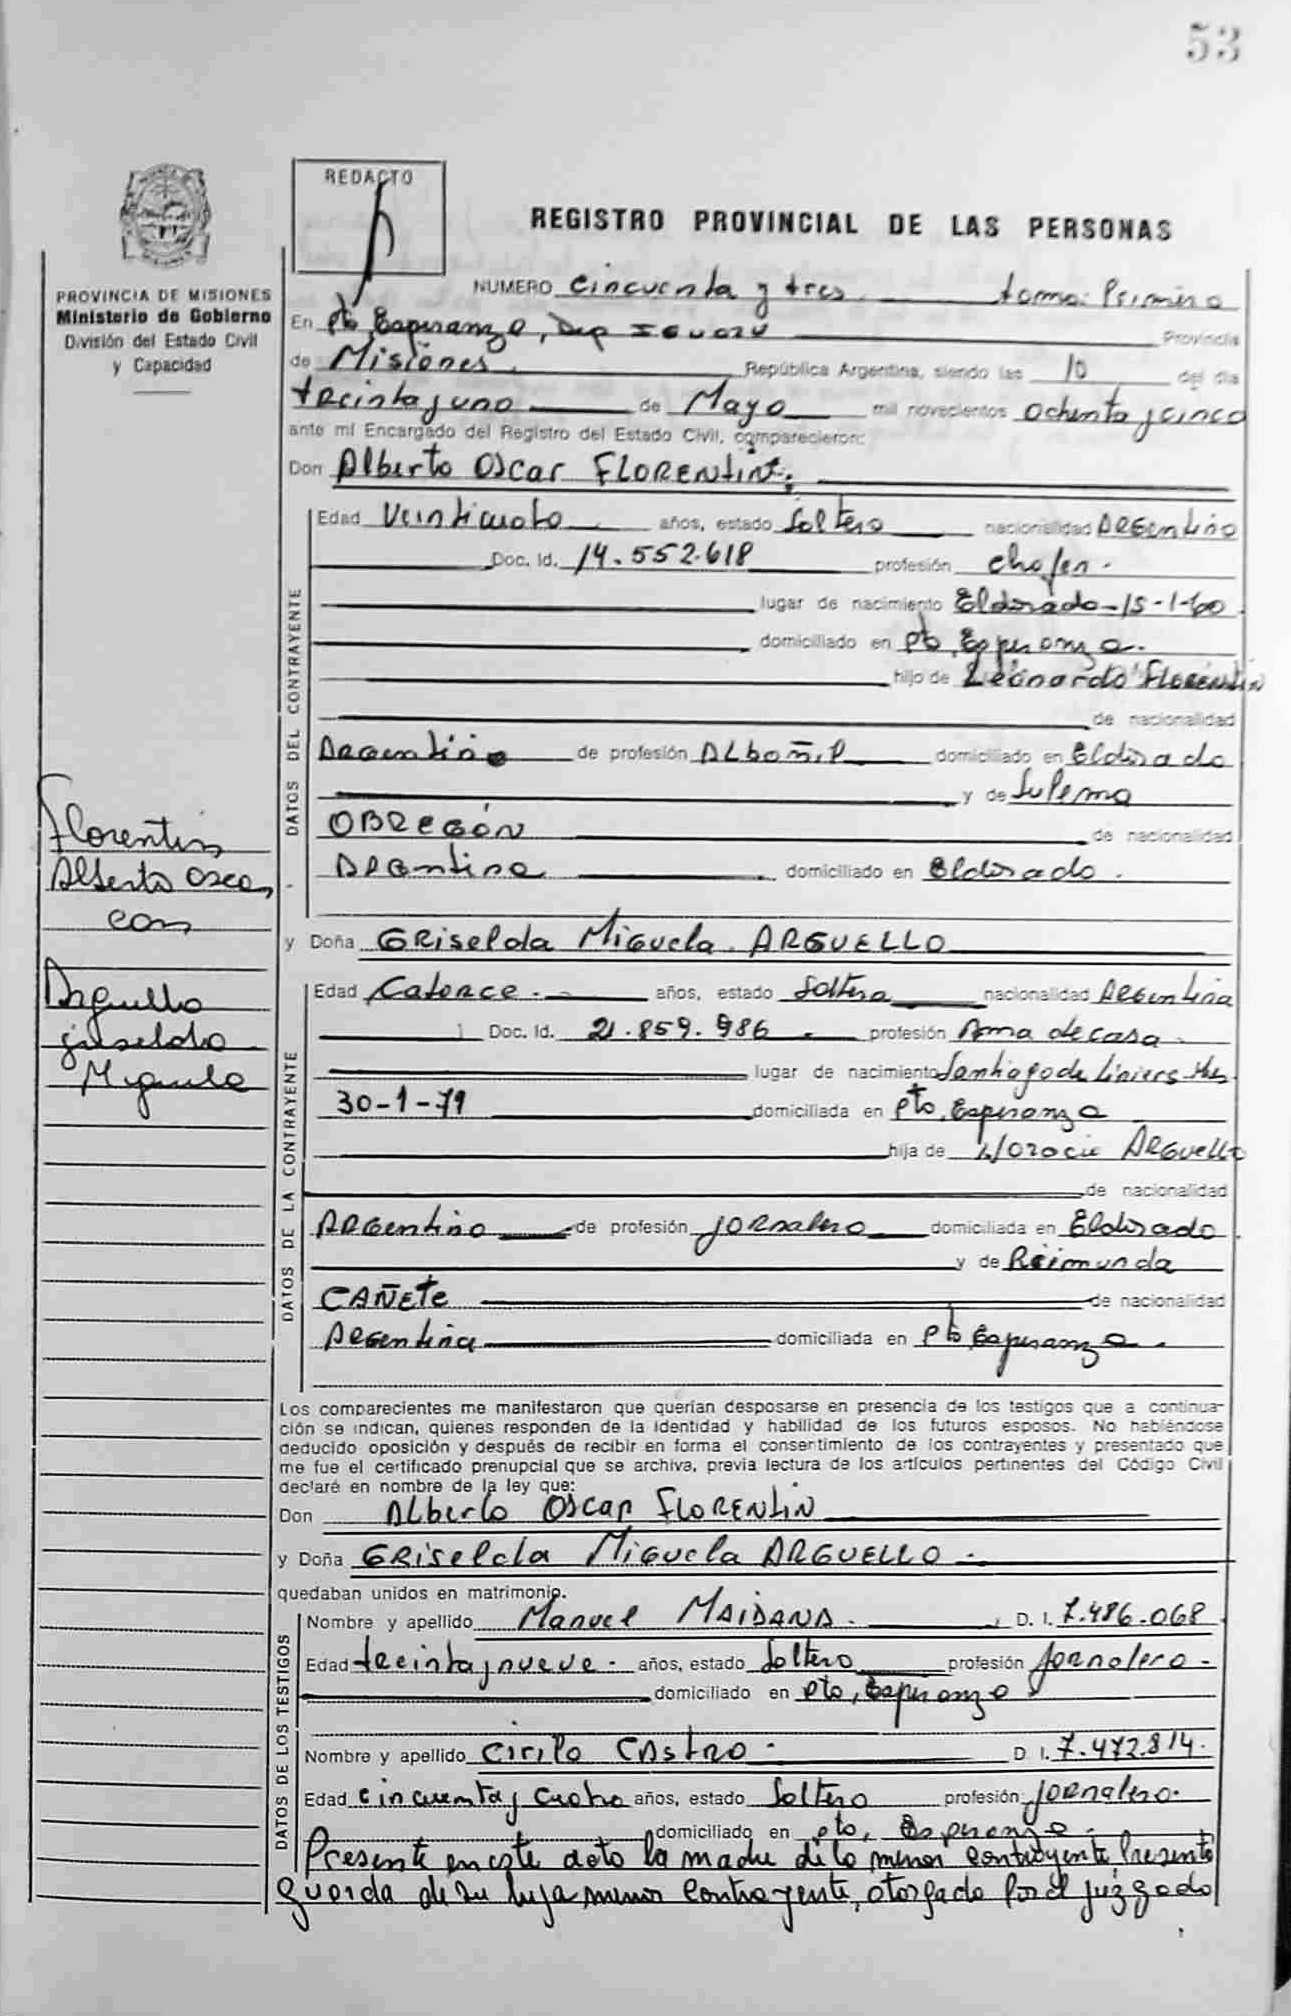 53
REDACTO
REGISTRO PROVINCIAL DE LAS PERSONAS
PROVINCIA DE MISIONES
Ministerio de Gobierno
División del Estado Civil
y Capacidad
NUMERO Cincuenta y tres. tomo: Primero
En Pto Esperanza, Dep IGUAZU Provincia
de Misiones República Argentina, siendo las 10 del dia
treinta y uno de Mayo mil novecientos ochenta y cinco
ante mí Encargado del Registro del Estado Civil, comparecieron:
Don Alberto Oscar FLORENtiN
DATOS DEL CONTRAYENTE
Edad Veinticuatro años, estado Soltero nacionalidad ARGentino
Doc. Id. 14.552.618 profesión chofer.
lugar de nacimiento Eldorado-15-1-60
domiciliado en Pto. Esperanza.
hijo de Leonardo FLORENtiN
de nacionalidad
ARGentino de profesión ALbañil domiciliado en Eldorado
y de Sulema
OBREGÓN de nacionalidad
ARGentina domiciliado en Eldorado.
Florentin
Alberto Oscar
con
Arguello
Griselda
Miguela
y Doña GRiselda Miguela ARGUELLO
DATOS DE LA CONTRAYENTE
Edad Catorce. años, estado Soltera nacionalidad ARGentina
Doc. Id. 21.859.986 profesión Ama de casa
lugar de nacimiento Santiago de Liniers
30-1-71 domiciliada en Pto. Esperanza
hija de Horacio ARGuello
de nacionalidad
ARGentino de profesión jORNalero domiciliada en Eldorado
y de Reimunda
CAÑEte de nacionalidad
ARGentina domiciliada en Pto Esperanza.
Los comparecientes me manifestaron que querían desposarse en presencia de los testigos que a continua-
ción se indican, quienes responden de la identidad y habilidad de los futuros esposos. No habiéndose
deducido oposición y después de recibir en forma el consertimiento de los contrayentes y presentado que
me fue el certificado prenupcial que se archiva, previa lectura de los artículos pertinentes del Código Civil
declaré en nombre de la ley que:
Don ALberto Oscar FLORENtiN
y Doña GRiselda Miguela ARGUELLO.
quedaban unidos en matrimonio.
DATOS DE LOS TESTIGOS
Nombre y apellido Manuel MAIDANA. D. I. 7.486.068
Edad treinta y nueve. años, estado Soltero profesión jORNalero.
domiciliado en Pto, Esperanza
Nombre y apellido Cirilo CAStRO. D I. 7.472.814.
Edad cincuenta y cuatro años, estado Soltero profesión jORNalero.
domiciliado en Pto, Esperanza.
Presente en este acto la madre de la menor contrayente Presento
guarda de su hija menor contrayente, otorgado por el juzgado